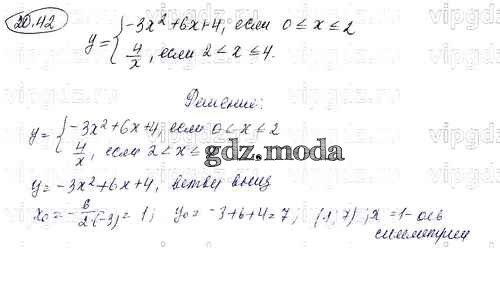 20.42
y = { -3x² + 6x + 4, если 0 ≤ x ≤ 2
4/x, если 2 < x ≤ 4.
Решение:
y = { -3x² + 6x + 4, если 0 < x ≤ 2
4/x, если 2 < x ≤
gdz.moda
y = -3x² + 6x + 4, ветви вниз
x₀ = - 6/2·(-3) = 1; y₀ = -3+6+4 = 7; (1; 7); x = 1 - ось
симметрии